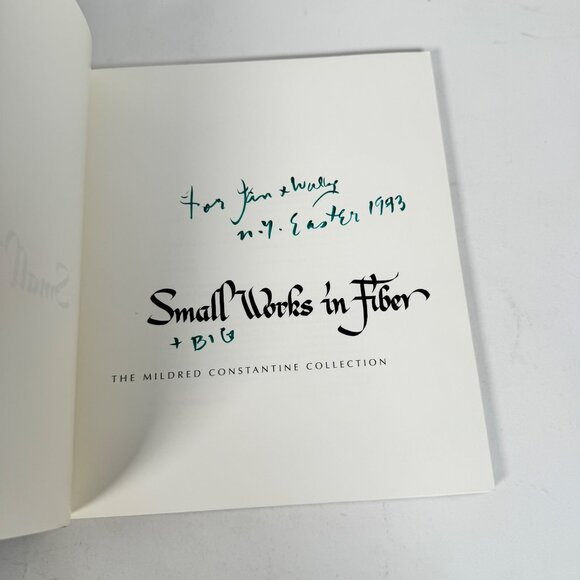 For Jan & Wally
N.Y. Easter 1993
Small Works in Fiber
+ BIG
THE MILDRED CONSTANTINE COLLECTION